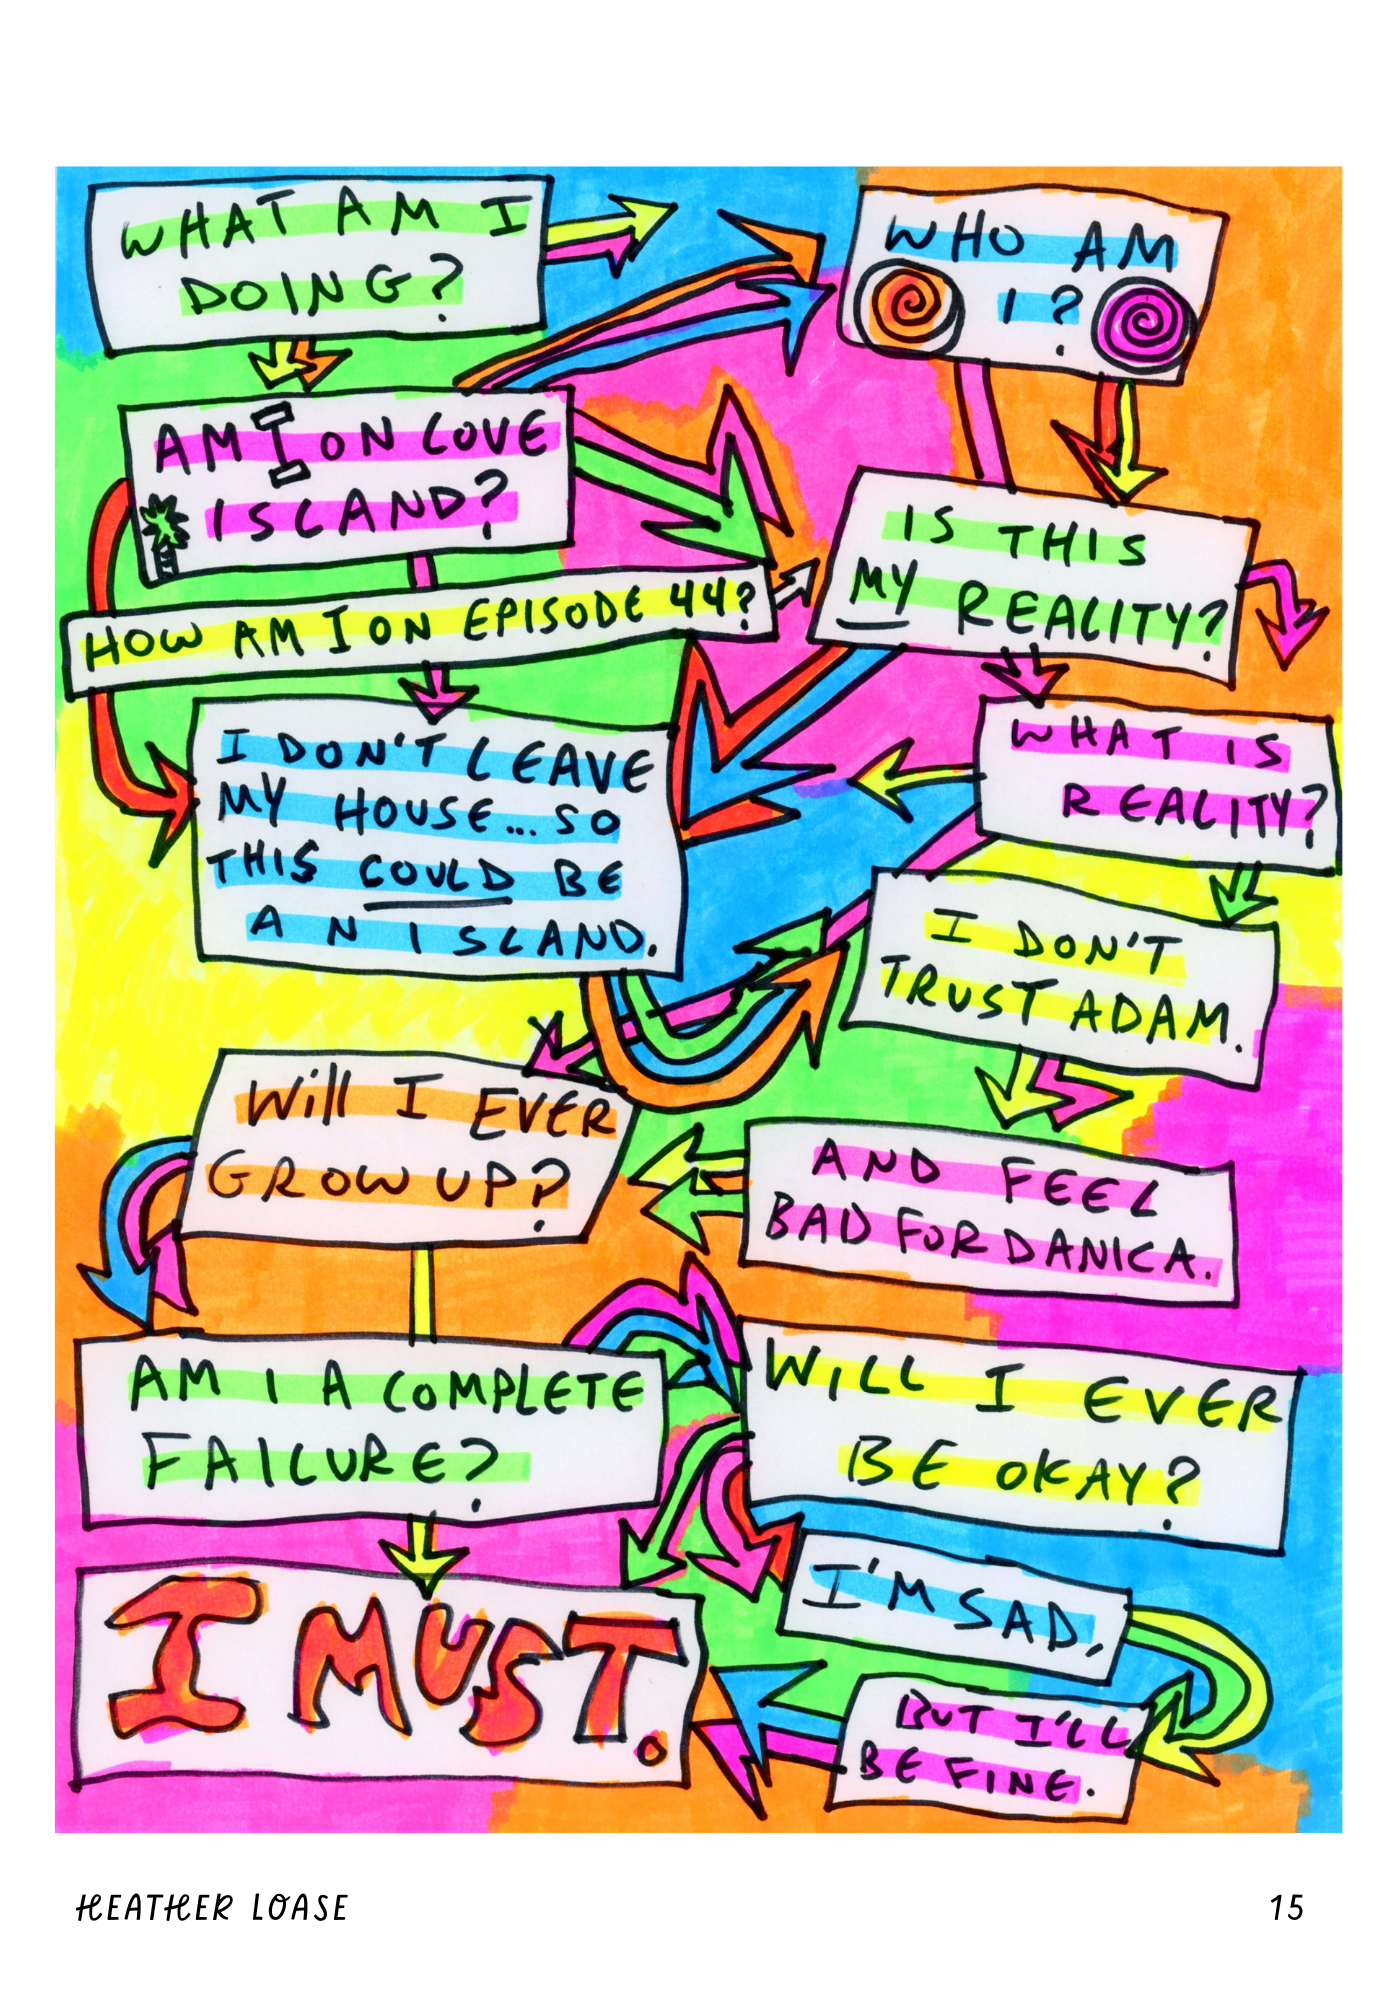 WHAT AM I
DOING?
WHO AM
I?
AM I ON LOVE
ISLAND?
IS THIS
MY REALITY?
HOW AM I ON EPISODE 44?
I DON'T LEAVE
MY HOUSE... SO
THIS COULD BE
AN ISLAND.
WHAT IS
REALITY?
I DON'T
TRUST ADAM.
Will I EVER
GROW UP?
AND FEEL
BAD FOR DANICA.
AM I A COMPLETE
FAILURE?
WILL I EVER
BE OKAY?
I'M SAD,
BUT I'LL
BE FINE.
I MUST.
HEATHER LOASE
15